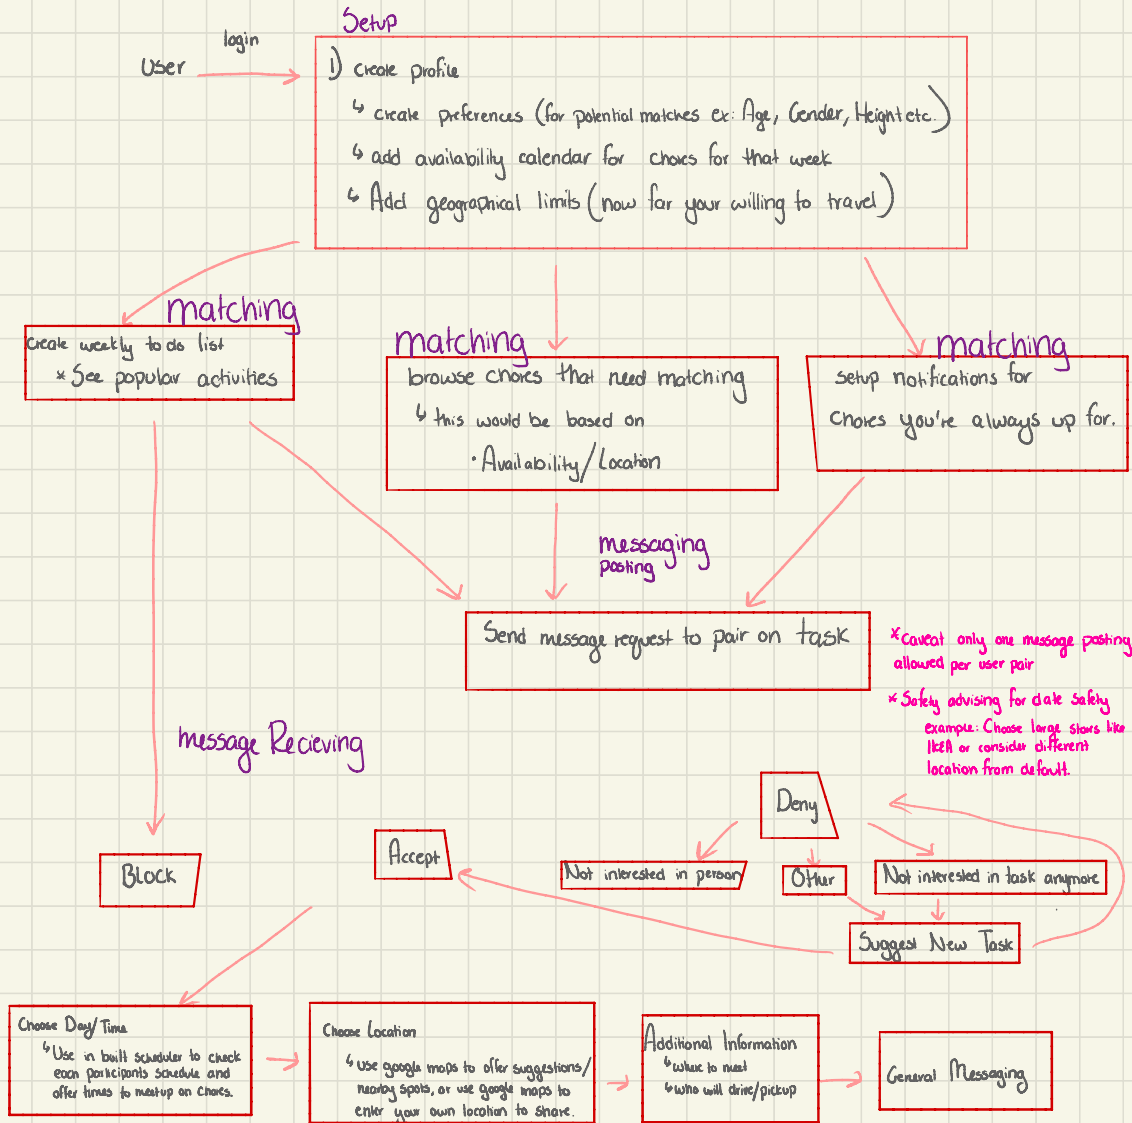 Setup
login
User
1) create profile
↳ create preferences (for potential matches ex: Age, Gender, Height etc.)
↳ add availability calendar for chores for that week
↳ Add geographical limits (now far your willing to travel)
matching
create weekly to do list
* See popular activities
matching
browse chores that need matching
↳ this would be based on
• Availability/Location
matching
setup notifications for
chores you're always up for.
messaging
posting
Send message request to pair on task
*Caveat only one message posting
allowed per user pair
* Safety advising for date safety
example: Choose large stores like
IKEA or consider different
location from default.
message Recieving
Block
Accept
Deny
Not interested in person
Other
Not interested in task anymore
Suggest New Task
Choose Day/Time
↳ Use in built scheduler to check
each participants schedule and
offer times to meetup on chores.
Choose Location
↳ use google maps to offer suggestions/
nearby spots, or use google maps to
enter your own location to share.
Additional Information
↳ where to meet
↳ who will drive/pickup
General Messaging